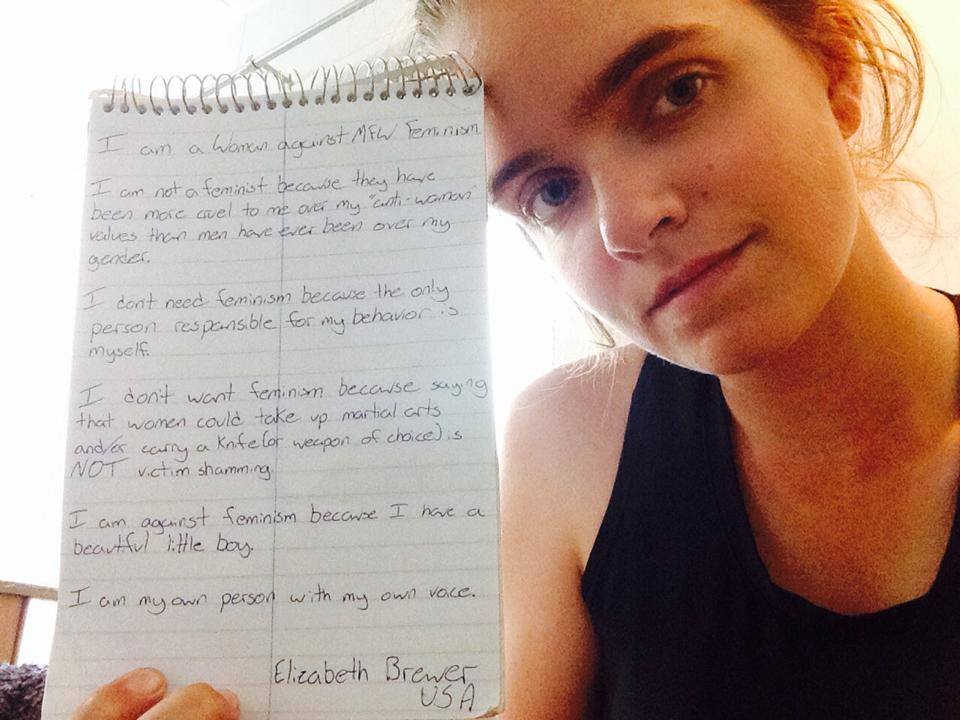 I am a Woman against MFW Feminism
I am not a feminist because they have
been more cruel to me over my "anti-woman"
values than men have ever been over my
gender.
I don't need feminism because the only
person responsible for my behavior is
myself.
I don't want feminism because saying
that women could take up martial arts
and/or carry a knife (or weapon of choice) is
NOT victim shamming.
I am against feminism because I have a
beautful little boy.
I am my own person with my own voice.
Elizabeth Brewer
USA